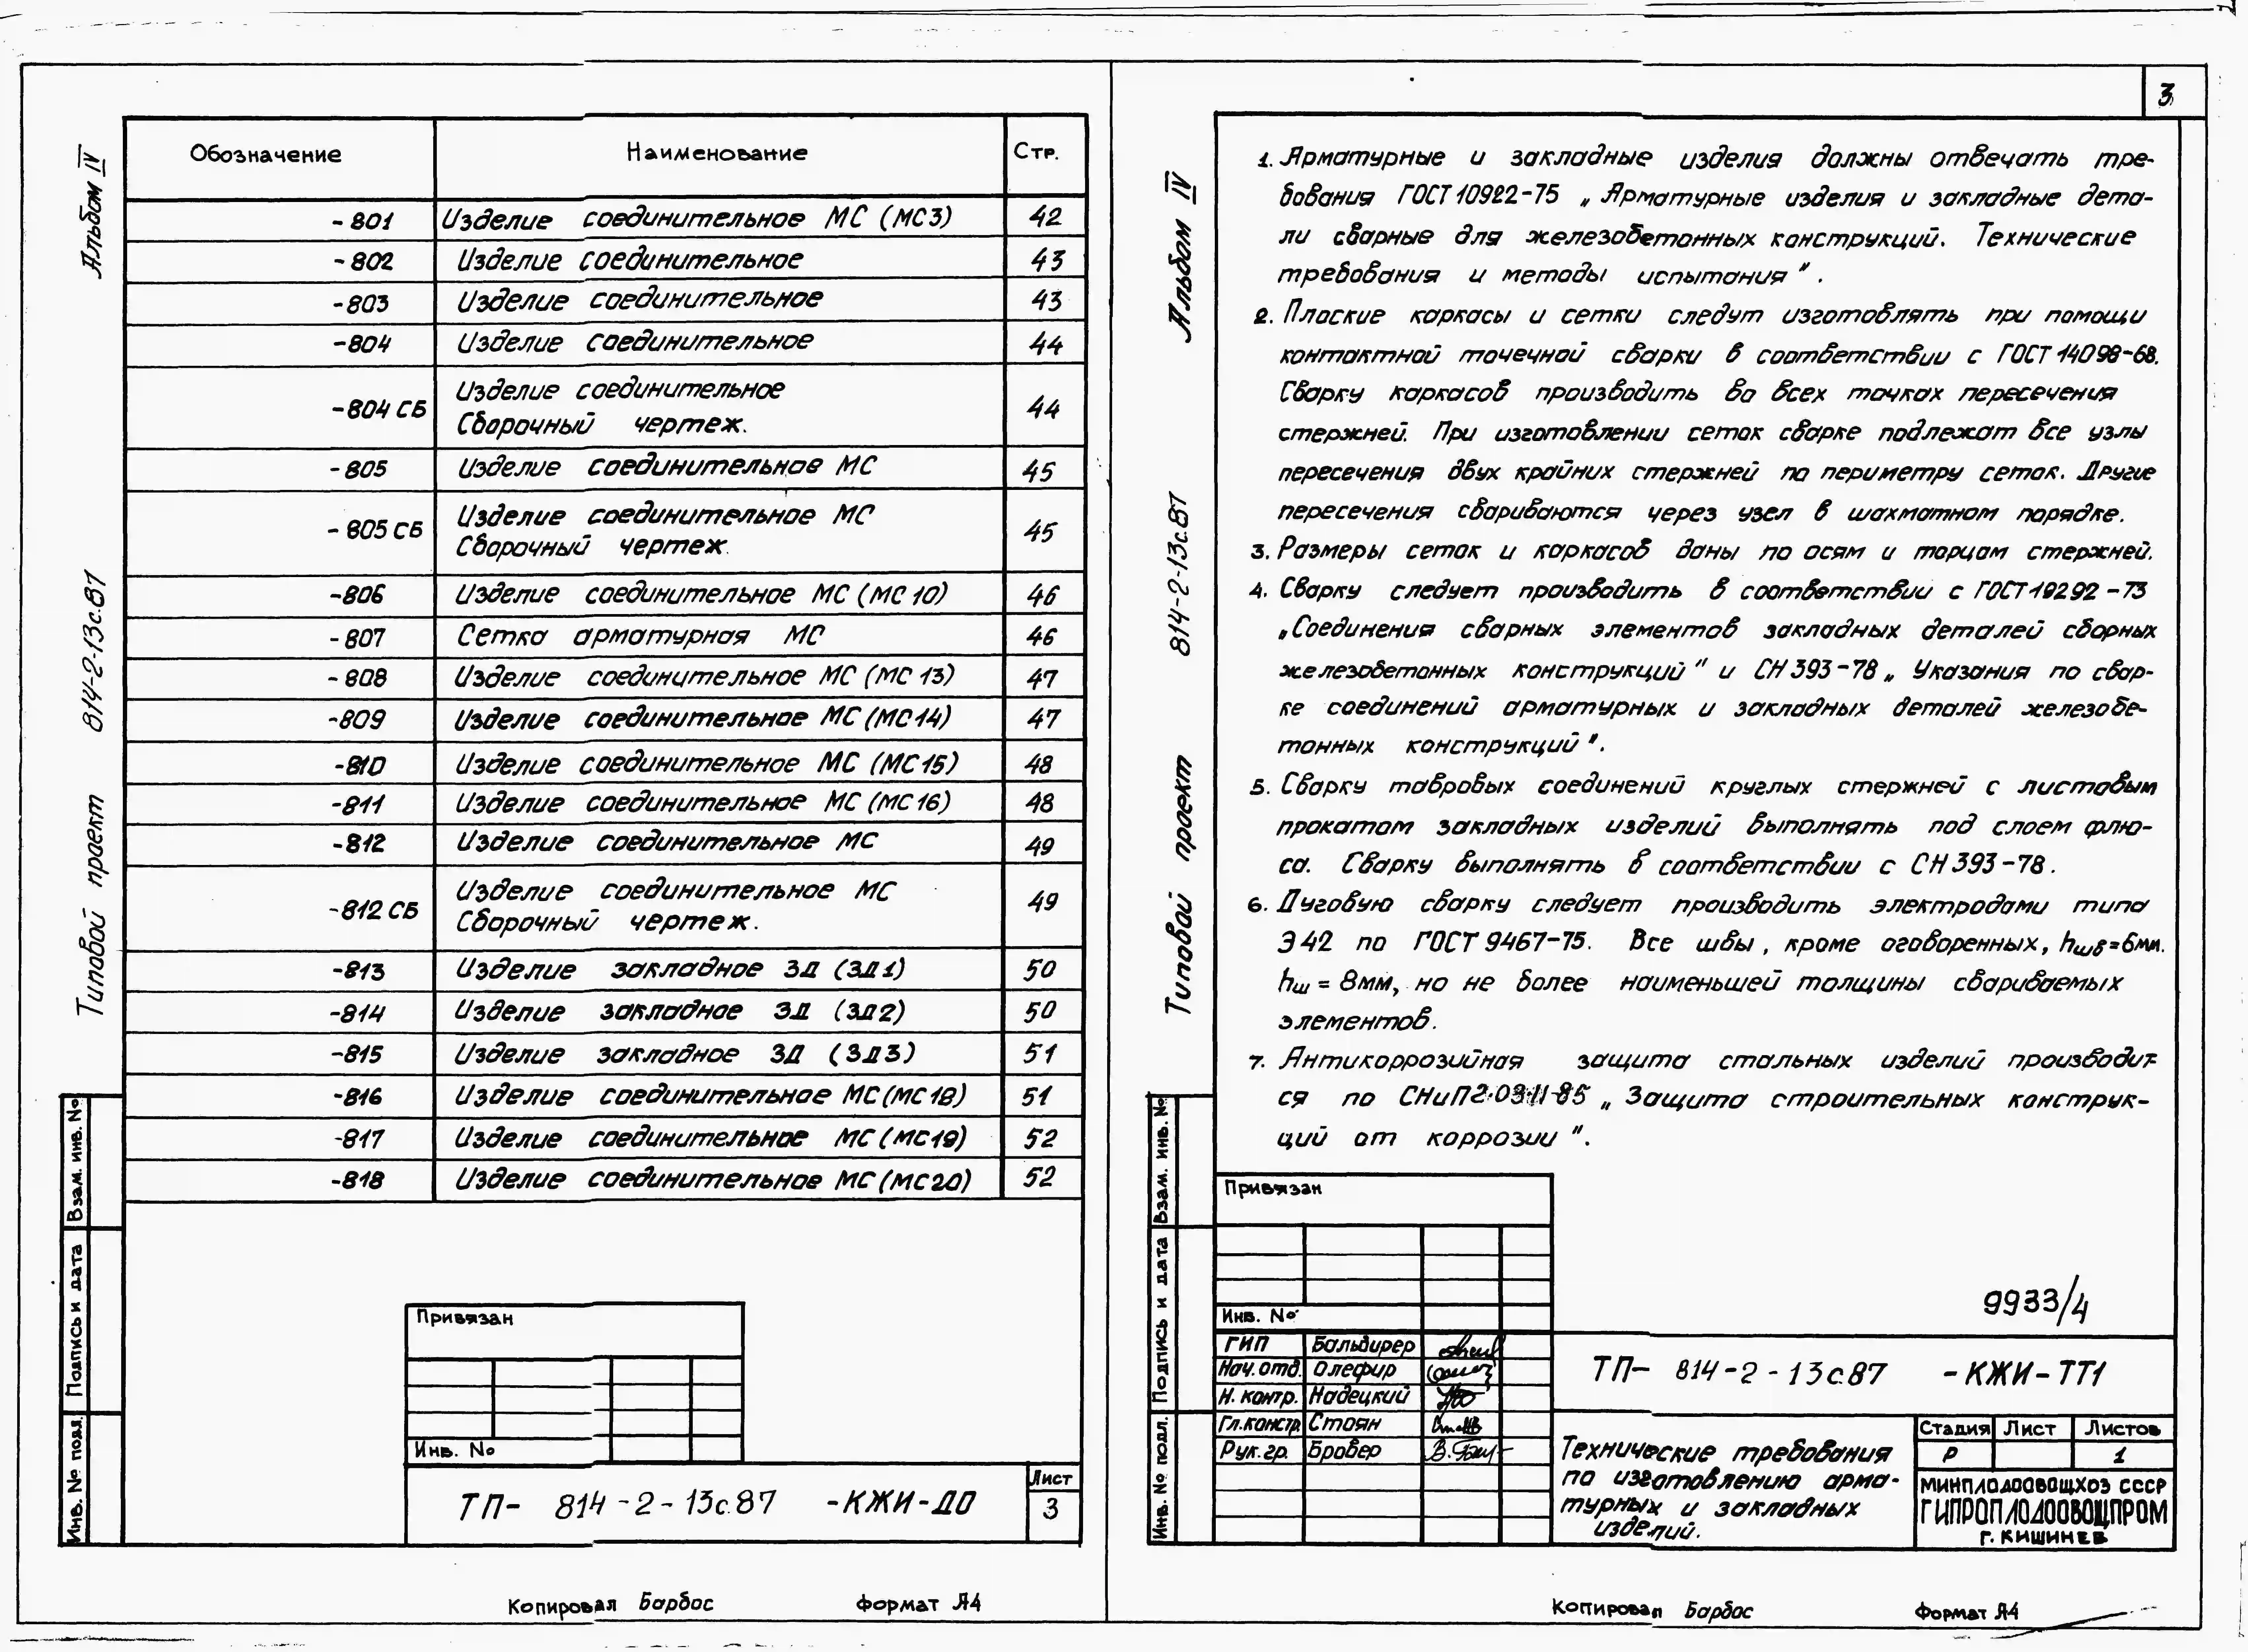 Альбом IV
Типовой проект 814-2-13с.87
Обозначение Наименование Стр.
-801 Изделие соединительное МС (МС3) 42
-802 Изделие соединительное 43
-803 Изделие соединительное 43
-804 Изделие соединительное 44
-804 СБ Изделие соединительное
Сборочный чертеж. 44
-805 Изделие соединительное МС 45
-805 СБ Изделие соединительное МС
Сборочный чертеж. 45
-806 Изделие соединительное МС (МС 10) 46
-807 Сетка арматурная МС 46
-808 Изделие соединительное МС (МС 13) 47
-809 Изделие соединительное МС (МС14) 47
-810 Изделие соединительное МС (МС15) 48
-811 Изделие соединительное МС (МС 16) 48
-812 Изделие соединительное МС 49
-812 СБ Изделие соединительное МС
Сборочный чертеж. 49
-813 Изделие закладное ЗД (ЗД1) 50
-814 Изделие закладное ЗД (ЗД2) 50
-815 Изделие закладное ЗД (ЗД3) 51
-816 Изделие соединительное МС (МС 18) 51
-817 Изделие соединительное МС (МС19) 52
-818 Изделие соединительное МС (МС20) 52
Взам. инв. №
Подпись и дата
Инв. № подл.
Привязан
Инв. №
ТП- 814-2-13с.87 -КЖИ-ДО
Лист
3
Копировал Барбос формат А4
3
Альбом IV
Типовой проект 814-2-13с.87
1. Арматурные и закладные изделия должны отвечать тре-
бования ГОСТ 10922-75 „Арматурные изделия и закладные дета-
ли сварные для железобетонных конструкций. Технические
требования и методы испытания".
2. Плоские каркасы и сетки следут изготовлять при помощи
контактной точечной сварки в соответствии с ГОСТ 14098-68.
Сварку каркасов производить во всех точках пересечения
стержней. При изготовлении сеток сварке подлежат все узлы
пересечения двух крайних стержней по периметру сеток. Другие
пересечения свариваются через узел в шахматном порядке.
3. Размеры сеток и каркасов даны по осям и торцам стержней.
4. Сварку следует производить в соответствии с ГОСТ 19292-73
„Соединения сварных элементов закладных деталей сборных
железобетонных конструкций" и СН 393-78 „Указания по свар-
ке соединений арматурных и закладных деталей железобе-
тонных конструкций".
5. Сварку тавровых соединений круглых стержней с листовым
прокатом закладных изделий выполнять под слоем флю-
са. Сварку выполнять в соответствии с СН 393-78.
6. Дуговую сварку следует производить электродами типа
Э42 по ГОСТ 9467-75. Все швы, кроме оговоренных, hшв=6мм.
hш = 8мм, но не более наименьшей толщины свариваемых
элементов.
7. Антикоррозийная защита стальных изделий производит-
ся по СНиП 2.03.11-85 „Защита строительных конструк-
ций от коррозии".
Взам. инв. №
Подпись и дата
Инв. № подл.
Привязан
Инв. №
9933/4
ГИП Бальдирер
Нач. отд. Олефир
Н. контр. Надецкий
Гл. констр. Стоян
Рук. гр. Бровер
ТП- 814-2-13с.87 -КЖИ-ТТ1
Технические требования
по изготовлению арма-
турных и закладных
изделий.
Стадия Лист Листов
Р 1
МИНПЛОДООВОЩХОЗ СССР
ГИПРОПЛОДООВОЩПРОМ
г. КИШИНЕВ
Копировал Барбос Формат А4